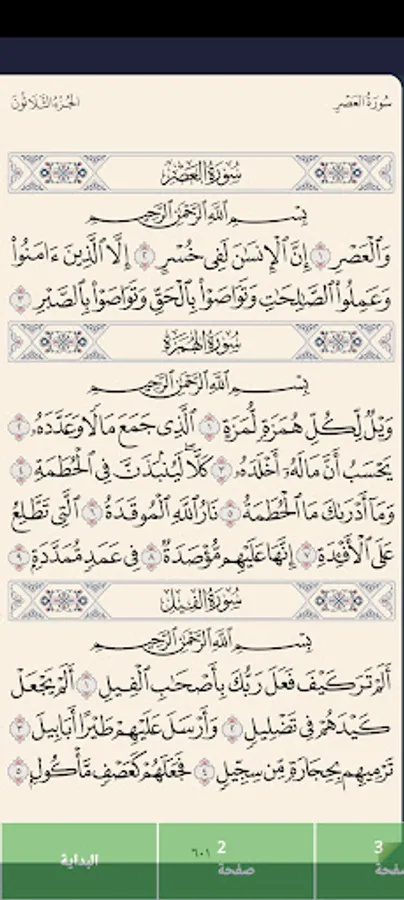 سُورَةُ العَصْرِ
الجُزْءُ الثَّلَاثُونَ
سُورَةُ العَصْرِ
بِسْمِ اللَّهِ الرَّحْمَٰنِ الرَّحِيمِ
وَالْعَصْرِ ١ إِنَّ الْإِنسَٰنَ لَفِى خُسْرٍ ٢ إِلَّا الَّذِينَ ءَامَنُوا۟
وَعَمِلُوا۟ الصَّٰلِحَٰتِ وَتَوَاصَوْا۟ بِالْحَقِّ وَتَوَاصَوْا۟ بِالصَّبْرِ ٣
سُورَةُ الهُمَزَةِ
بِسْمِ اللَّهِ الرَّحْمَٰنِ الرَّحِيمِ
وَيْلٌ لِّكُلِّ هُمَزَةٍ لُّمَزَةٍ ١ الَّذِى جَمَعَ مَالًا وَعَدَّدَهُۥ ٢
يَحْسَبُ أَنَّ مَالَهُۥٓ أَخْلَدَهُۥ ٣ كَلَّا ۖ لَيُنۢبَذَنَّ فِى الْحُطَمَةِ ٤
وَمَآ أَدْرَىٰكَ مَا الْحُطَمَةُ ٥ نَارُ اللَّهِ الْمُوقَدَةُ ٦ الَّتِى تَطَّلِعُ
عَلَى الْأَفْـِٔدَةِ ٧ إِنَّهَا عَلَيْهِم مُّؤْصَدَةٌ ٨ فِى عَمَدٍ مُّمَدَّدَةٍۭ ٩
سُورَةُ الفِيلِ
بِسْمِ اللَّهِ الرَّحْمَٰنِ الرَّحِيمِ
أَلَمْ تَرَ كَيْفَ فَعَلَ رَبُّكَ بِأَصْحَٰبِ الْفِيلِ ١ أَلَمْ يَجْعَلْ
كَيْدَهُمْ فِى تَضْلِيلٍ ٢ وَأَرْسَلَ عَلَيْهِمْ طَيْرًا أَبَابِيلَ ٣
تَرْمِيهِم بِحِجَارَةٍ مِّن سِجِّيلٍ ٤ فَجَعَلَهُمْ كَعَصْفٍ مَّأْكُولٍۭ ٥
٦٠١
3
صفحة
2
صفحة
البداية